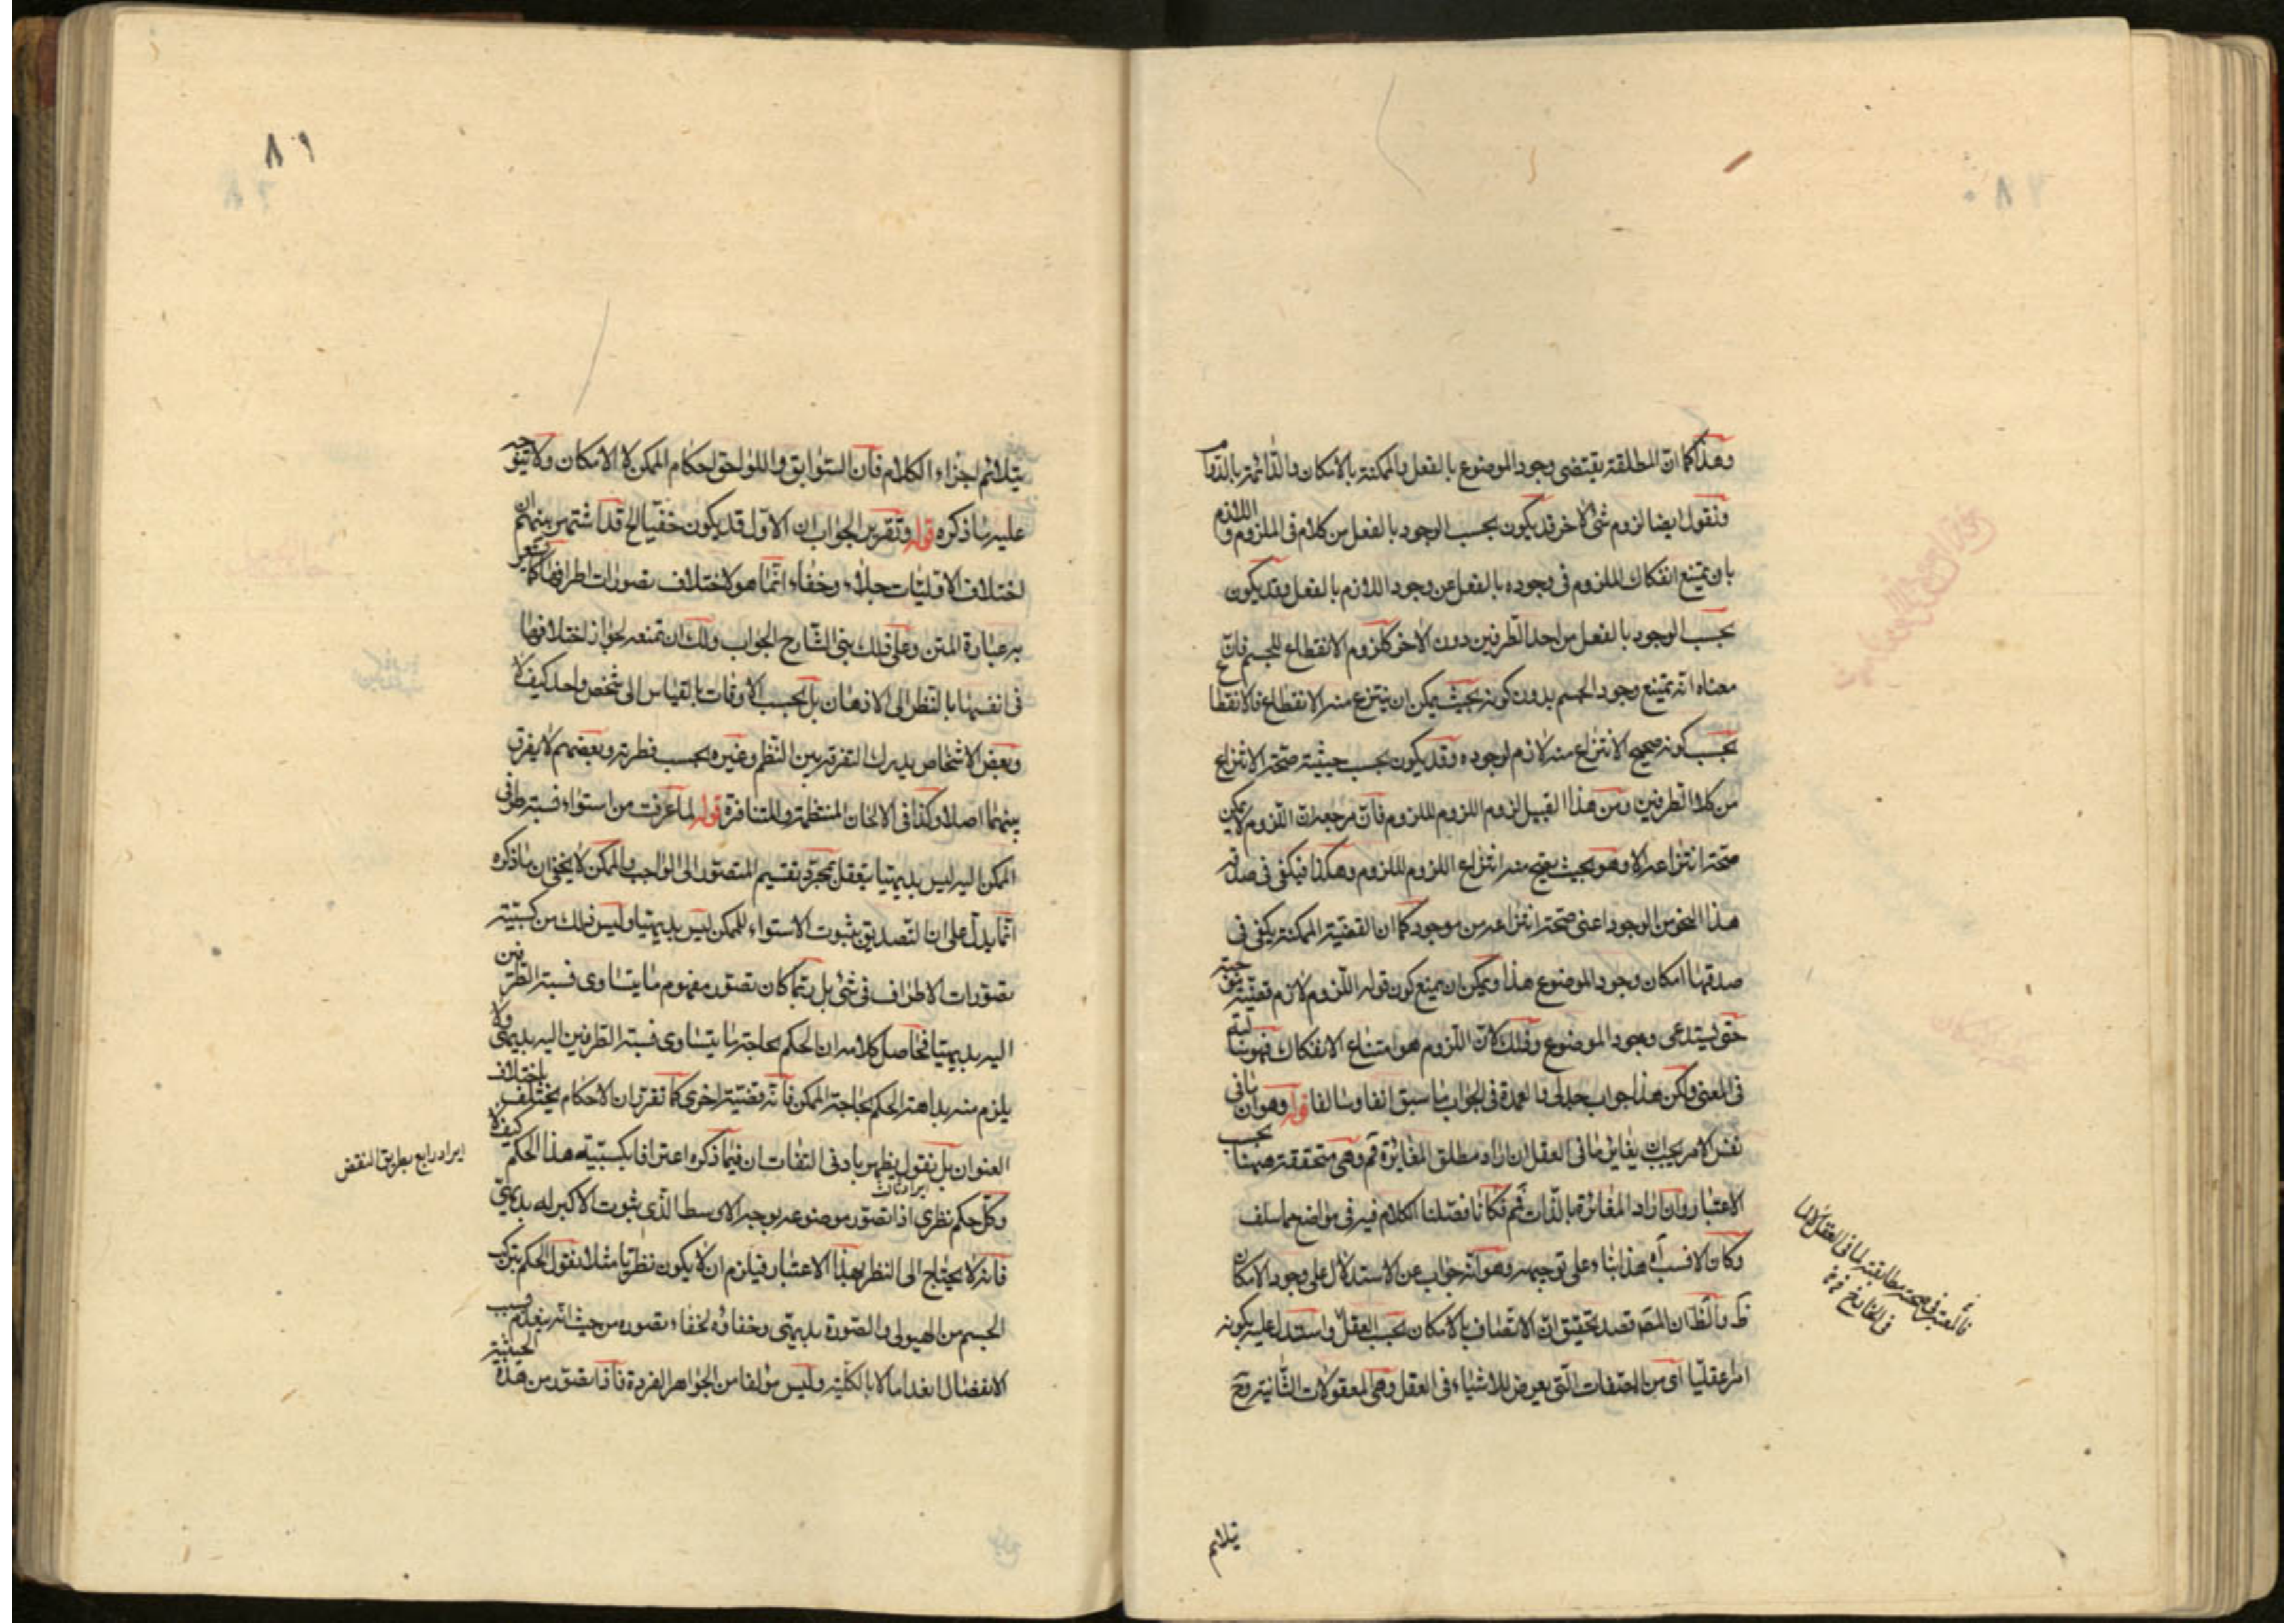 وهذا كما ان المطلقة يقتضى وجود الموضوع بالفعل والممكنة بالامكان والدائمة بالدوام
ونقول ايضا لزوم شئ لاخر قد يكون بحسب الوجود بالفعل من كلام فى الملزوم واللازم
بان يمتنع انفكاك الملزوم فى وجوده بالفعل عن وجود اللازم بالفعل وقد يكون
بحسب الوجود بالفعل من احد الطرفين دون الاخر كلزوم الانقطاع للجسم فان
معناه انه يمتنع وجود الجسم بدون كونه بحيث يمكن ان ينتزع منه الانقطاع فالانقطاع
بحسب كونه صحيح الانتزاع منه لازم لوجوده وقد يكون بحسب حيثية صحة الانتزاع
من كلا الطرفين ومن هذا القبيل لزوم اللزوم للملزوم فان مرجعه ان اللزوم لا يمكن
صحة انتزاعه الا وهو بحيث يصح منه انتزاع اللزوم للملزوم وهكذا فيكفى فى صدقه
هذا النحو من الوجود اعنى صحة انتزاعه من موجود كما ان القضية الممكنة يكفى فى
صدقها امكان وجود الموضوع هذا ويمكن ان يمنع كون قوله اللزوم لازم قضية موجبة
حتى يستدعى وجود الموضوع وذلك لان اللزوم هو امتناع الانفكاك فهو سالبة
فى المعنى ولكن هذا جواب جدلى والعمدة فى الجواب ما سبق انفا وسالفا قوله وهو ان ما فى
نفس الامر يجب ان يغاير ما فى العقل ان اراد مطلق المغايرة فم وهى متحققة ههنا بحسب
الاعتبار وان اراد المغايرة بالذات فم فكانا فصلنا الكلام فيه فى مواضع مما سلف
وكان الانسب آه هذا بناء على توجيهه وهو انه جواب عن الاستدلال على وجود الامكان
والظ ان المصه قصد تحقيق ان الاتصاف بالامكان بحسب العقل واستدل عليه بكونه
امرا عقليا اى من الصفات التى يعرض للاشياء فى العقل وهى المعقولات الثانية وح
فالمعتبر فى صحته مطابقته لما فى العقل لا لما
فى الخارج
يتلائم
٨٦
يتلائم اجزاء الكلام فان السوابق واللواحق احكام الممكن لا الامكان ولا يتوجه
عليه ما ذكره قوله وتقرير الجواب ان الاول قد يكون خفيا الخ قد اشتهر بينهم ان
اختلاف الاوليات جلاء وخفاء انما هو لاختلاف تصورات اطرافها كما يشعر
به عبارة المتن وعلى ذلك بنى الشارح الجواب ولك ان تمنعه لجواز اختلافها
فى انفسها بالنظر الى الاذهان بل بحسب الاوقات بالقياس الى شخص واحد كيف لا
وبعض الاشخاص يدرك التفرقة بين النظم وغيره بحسب فطرته وبعضهم لا يفرق
بينهما اصلا وكذا فى الالحان المنتظمة والمتنافرة قوله لما عرفت من استواء نسبة طرفى
الممكن اليه ليس بديهيا يتعقل بمجرد تقسيم المتصور الى الواجب والممكن لا يخفى ان ما ذكره
انما يدل على ان التصديق بثبوت الاستواء للممكن ليس بديهيا وليس ذلك من كسبية
تصورات الاطراف فى شئ بل ربما كان تصور مفهوم ما يتساوى نسبة الطرفين
اليه بديهيا فحاصل كلامه ان الحكم بحاجة ما يتساوى نسبة الطرفين اليه بديهى ولا
يلزم منه بداهة الحكم بحاجة الممكن فانه قضية اخرى كما تقرر ان الاحكام يختلف باختلاف
العنوان بل نقول يظهر بادنى التفات ان فيما ذكره اعترافا بكسبية هذا الحكم كيف لا
وكل حكم نظرى اذا تصور موضوعه بوجه الاوسط الذى ثبوت الاكبر له بديهى
فانه لا يحتاج الى النظر بهذا الاعتبار فيلزم ان لا يكون نظريا مثلا نقول الحكم بتركب
الجسم من الهيولى والصورة بديهى وخفاؤه لخفاء تصوره من حيث انه ينعدم بسبب
الانفصال انعداما لا بالكلية وليس مؤلفا من الجواهر الفردة فاذا تصور من هذه الحيثية
ايراد رابع بطريق النقض